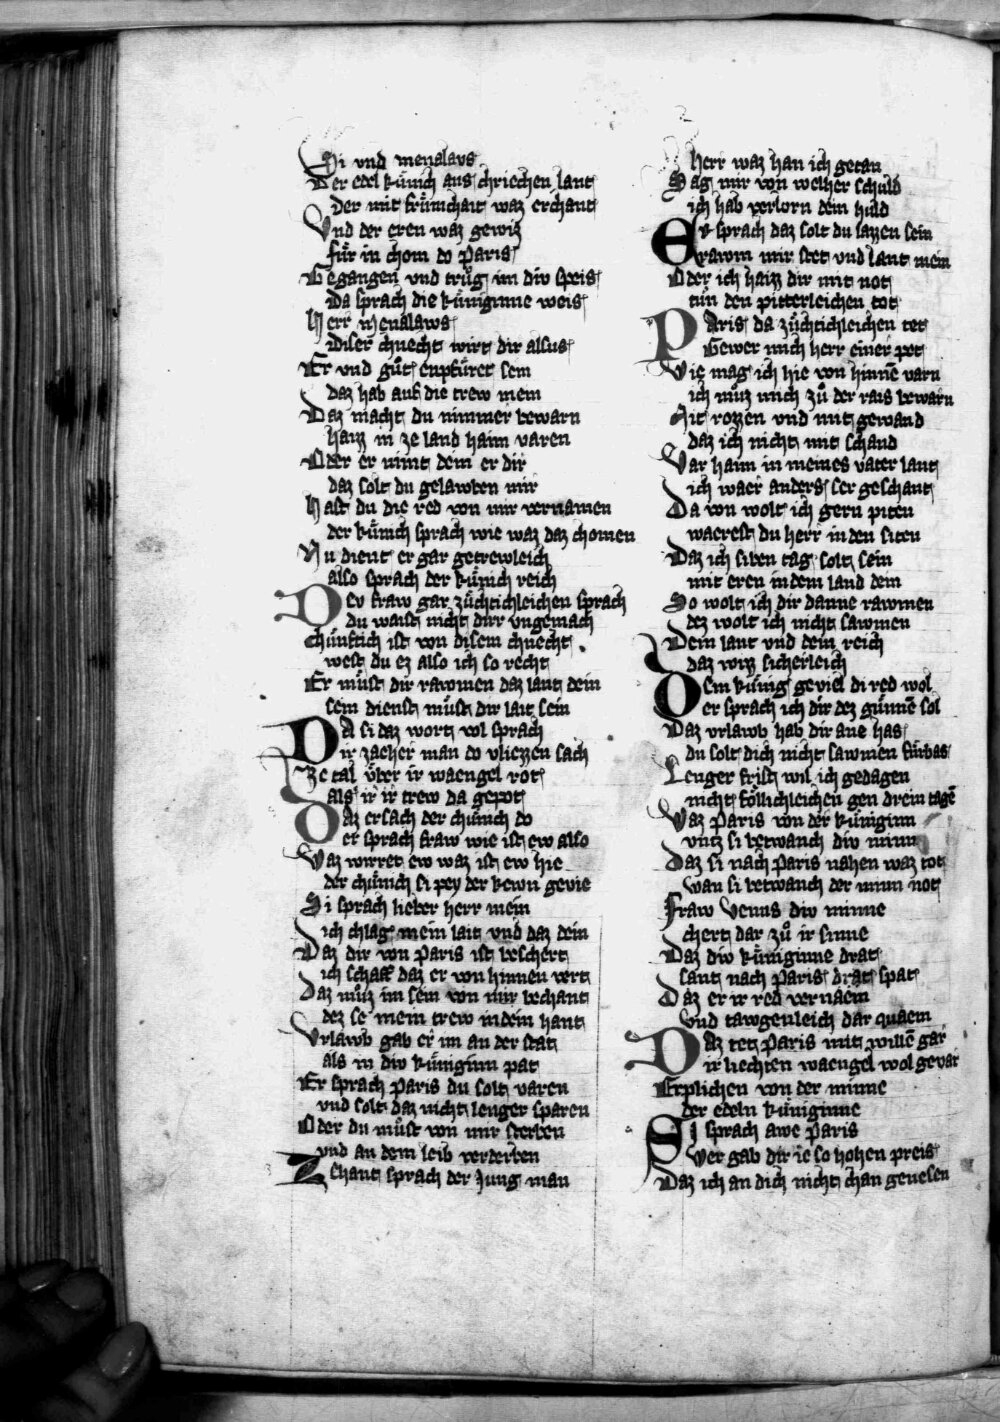 Si vnd menalavs
Der edel kuͤnich aus chriechen lant
der mit fruͤmchait waz erchant
Vnd der eren waz gewiz
fuͤr in chom do Paris
Gegangen vnd truͦg im div speis
Da sprach die kuͤniginne weis
Herr Menalaws
diser chnecht wirt dir alsus
Er vnd guͦt enpfuͤret sein
daz hab auf die trew mein
Daz macht du nimmer bewarn
haizz in ze land haim varen
Oder er nimt dem er dir
daz solt du gelawben mir
Hast du die red von mir vernamen
der kuͤnich sprach wie waz daz chomen
Nu dient er gar getrewleich
also sprach der kuͤnich reich
Dev fraw gar zuͤchtichleichen sprach
du waist nicht dirr vngemach
Chuͤnftich ist von disem chnecht
west du ez also ich so recht
Er muͤst dir rawmen daz lant dein
sein dienst must dir lait sein
Da si daz wort vol sprach
ir zacher man do vliezzen sach
Ze tal uͤber ir waengel rot
als ir ir trew da gepot
Daz ersach der chuͤnich do
er sprach fraw wie ist ew also
Waz wirret ew waz ist ew hie
der chuͤnich si pey der kewn gevie
Si sprach lieber herr mein
ich chlag mein lait vnd daz dein
Daz dir von Paris ist beschert
ich schaff daz er von hinnen vert
Daz muͦz im sein von mir bechant
dez se mein trew in dein hant
Vrlawb gab er im an der stat
als in div kuͤniginn pat
Er sprach Paris du solt varen
vnd solt daz nicht lenger sparen
Oder du muͦst von mir sterben
vnd an dem leib verderben
Zehant sprach der Jung man
herr waz han ich getan
Sag mir von welher schuld
ich hab verlorn dein huld
Er sprach daz solt du lazzen sein
rawm mir stet vnd lant mein
Oder ich haizz dir mit not
tuͤn den pitterleichen tot
Paris da zuͤchtichleichen tet
Gewer mich herr einer pet
Wie mag ich hie von hinnē varn
ich muͦz mich zuͦ der rais bewarn
Mit rozzen vnd mit gewand
daz ich nicht mit schand
Var haim in meines vater lant
ich waer anders ser geschant
Da von wolt ich gern piten
waerest du herr in den siten
Daz ich siben tag solt sein
mit eren in dem land dein
So wolt ich dir danne rawmen
dez wolt ich nicht sawmen
Dein lant vnd dein reich
daz wizz sicherleich
Dem kuͤnig geviel di red wol
er sprach ich dir dez guͤnnē sol
Daz vrlawb hab dir ane has
du solt dich nicht sawmen fuͤrbas
Lenger frist wil ich gedagen
nicht foͤllichleichen gen drein tagē
Waz Paris von der kuͤniginn
vntz si betwanch div minn
Daz si nach Paris nahen waz tot
wan si betwanch der minn not
Fraw Venus div minne
chert dar zuͦ ir sinne
Daz div kuͤniginne drat
sant nach Paris drat spat
Daz er ir red vernaem
vnd tawgenleich dar quaem
Daz tet Paris mit willē gar
ir liechten waengel wol gevar
Erplichen von der minne
der edeln kuͤniginne
Si sprach awe Paris
Wer gab dir ie so hohen preis
Daz ich an dich nicht chan genesen